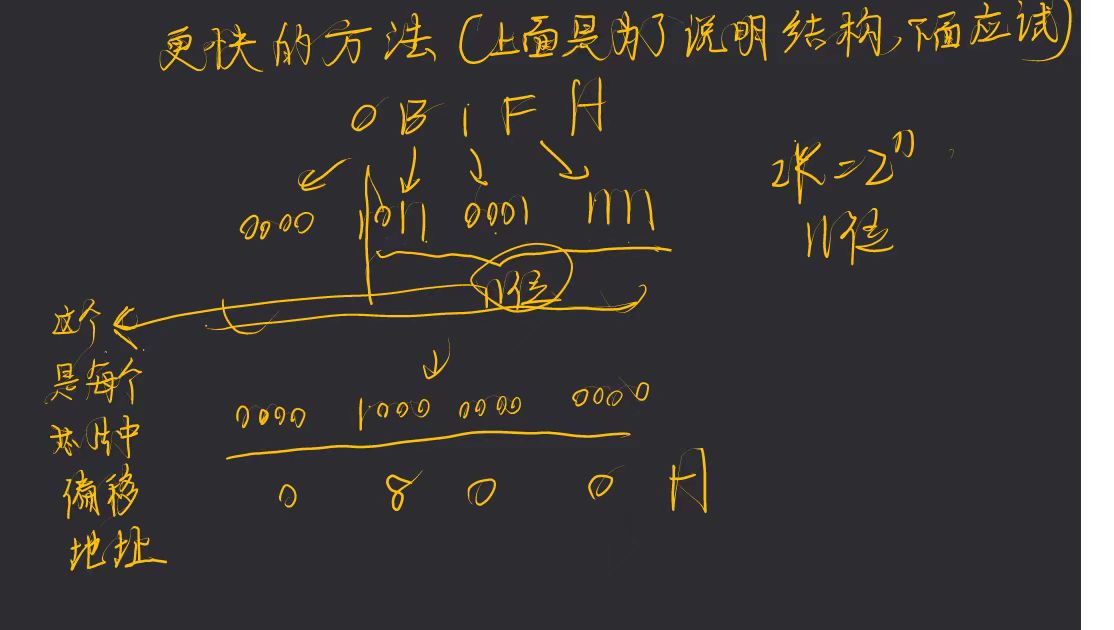 更快的方法(上面是为了说明结构,下面应试)
0 B 1 F H
2K=2^11
0000 1011 0001 1111
11位
11位
这个
是每个
芯片中
偏移
地址
0000 1000 0000 0000
0 8 0 0 H